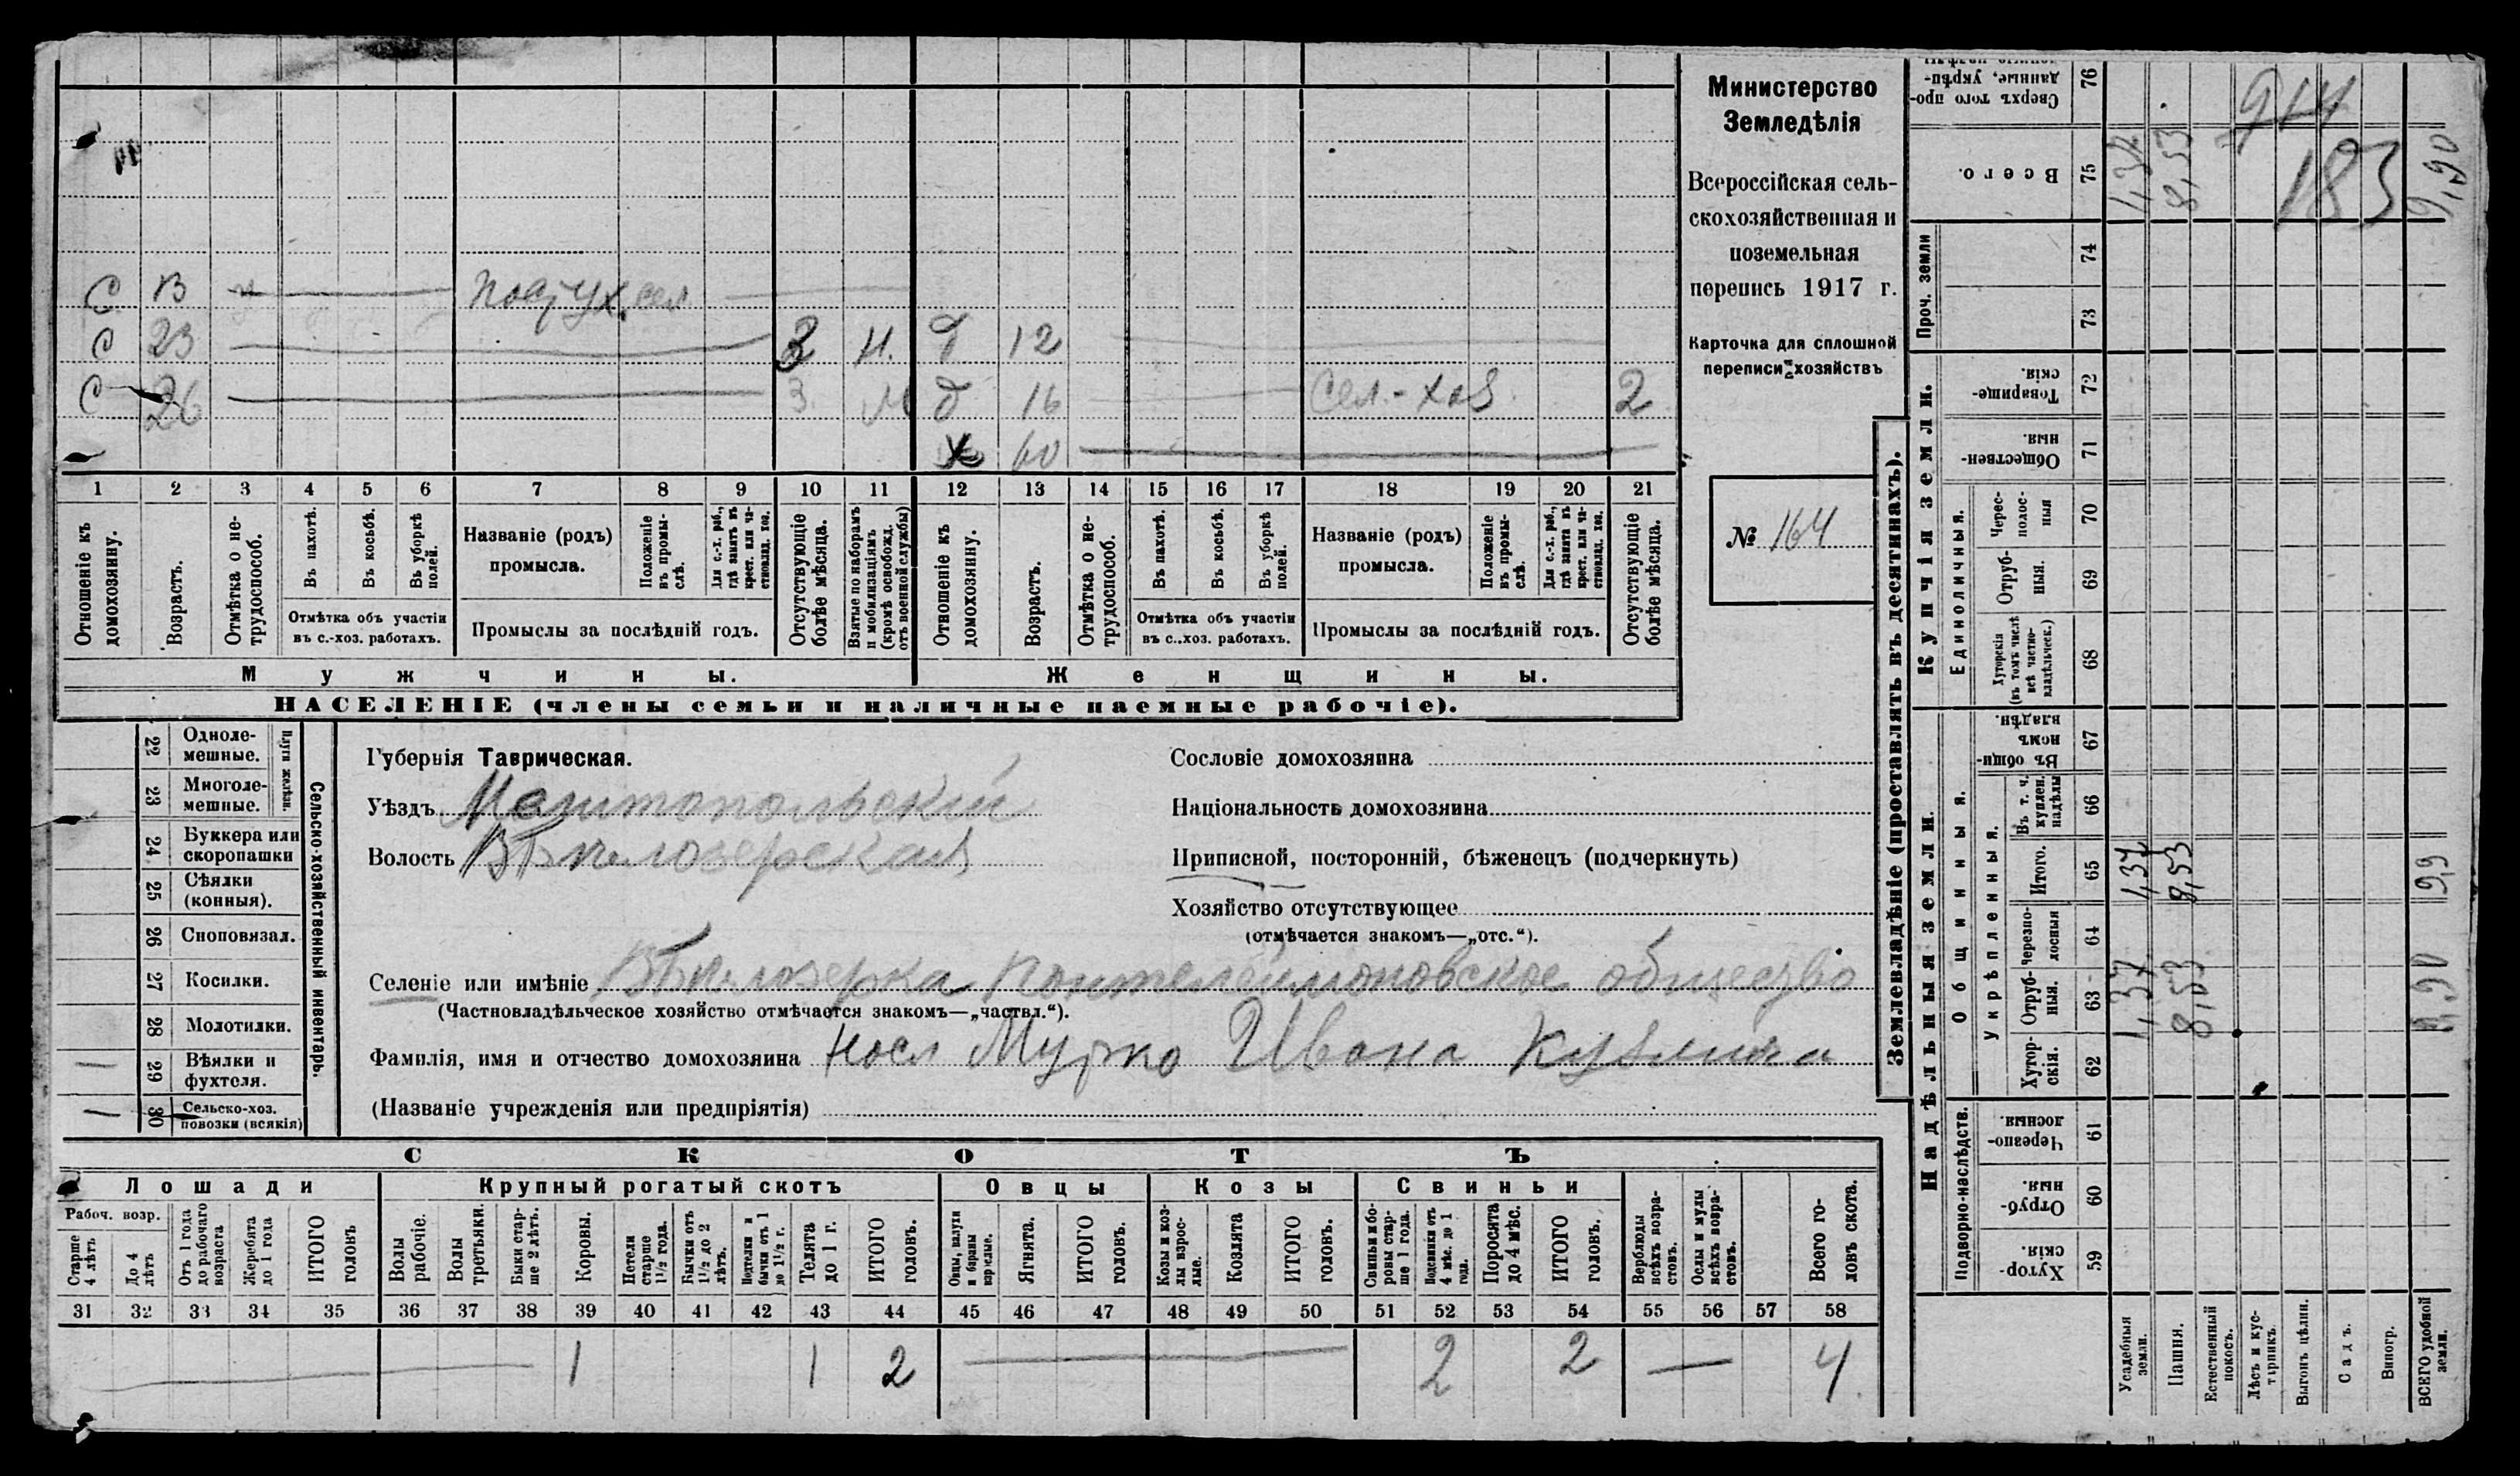 Министерство
Земледѣлія
Всероссійская сель-
скохозяйственная и
поземельная
перепись 1917 г.
Карточка для сплошной
переписи хозяйствъ
№ 164
С 13 пастух сел
С 23 3 Н. д 12
С 26 3 М д 16 сел.-хоз 2
60
1 2 3 4 5 6 7 8 9 10 11 12 13 14 15 16 17 18 19 20 21
Отношеніе къ домохозяину.
Возрастъ.
Отмѣтка о не-трудоспособ.
Въ пахотѣ.
Въ косьбѣ.
Въ уборкѣ полей.
Отмѣтка объ участіи
въ с.-хоз. работахъ.
Названіе (родъ)
промысла.
Положеніе въ промы-слѣ.
Для с.-х. раб., гдѣ занятъ въ крест. или ча-ствовлад. хоз.
Промыслы за послѣдній годъ.
Отсутствующіе болѣе мѣсяца.
Взятые по наборамъ и мобилизаціямъ (кромѣ освобожд. отъ военной службы)
Отношеніе къ домохозяину.
Возрастъ.
Отмѣтка о не-трудоспособ.
Въ пахотѣ.
Въ косьбѣ.
Въ уборкѣ полей.
Отмѣтка объ участіи
въ с..хоз. работахъ.
Названіе (родъ)
промысла.
Положеніе въ промы-слѣ.
Для с.-х. раб., гдѣ занята въ крест. или ча-ствовлад. хоз.
Промыслы за послѣдній годъ.
Отсутствующіе болѣе мѣсяца.
Мужчины. Женщины.
НАСЕЛЕНІЕ (члены семьи и наличные наемные рабочіе).
Сельско-хозяйственный инвентарь.
Плуги желѣзн.
22 Одноле-мешные.
23 Многоле-мешные.
24 Буккера или скоропашки
25 Сѣялки (конныя).
26 Сноповязал.
27 Косилки.
28 Молотилки.
— 29 Вѣялки и фухтеля.
— 30 Сельско-хоз. повозки (всякія)
Губернія Таврическая.
Уѣздъ Мелитопольскій
Волость Бѣлозерская
Сословіе домохозяина
Національность домохозяина
Приписной, посторонній, бѣженецъ (подчеркнуть)
Хозяйство отсутствующее
(отмѣчается знакомъ—„отс.“).
Селеніе или имѣніе Бѣлозерка Понтелеймоновское общество
(Частновладѣльческое хозяйство отмѣчается знакомъ—„частвл.“).
Фамилія, имя и отчество домохозяина Мурко Ивана Кузмича
(Названіе учрежденія или предпріятія)
СКОТЪ
Лошади Крупный рогатый скотъ Овцы Козы Свиньи
Рабоч. возр.
Старше 4 лѣтъ
До 4 лѣтъ
Отъ 1 года до рабочаго возраста
Жеребята до 1 года
ИТОГО головъ
Волы рабочіе.
Волы третьяки.
Быки стар-ше 2 лѣтъ.
Коровы.
Нетели старше 1½ года.
Бычки отъ 1½ до 2 лѣтъ.
Подтелки и бычки отъ 1 до 1½ г.
Телята до 1 г.
ИТОГО головъ.
Овцы, валухи и бараны взрослые.
Ягнята.
ИТОГО головъ.
Козы и коз-лы взрос-лые.
Козлята
ИТОГО головъ.
Свиньи и бо-ровы стар-ше 1 года.
Подсвинки отъ 4 мѣс. до 1 года.
Поросята до 4 мѣс.
ИТОГО головъ.
Верблюды всѣхъ возра-стовъ.
Ослы и мулы всѣхъ возра-стовъ.
Всего го-ловъ скота.
31 32 33 34 35 36 37 38 39 40 41 42 43 44 45 46 47 48 49 50 51 52 53 54 55 56 57 58
1 1 2 2 2 — 4
Землевладѣніе (проставлять въ десятинахъ).
Надѣльныя земли.
Купчія земли.
Проч. земли
Подворно-наслѣдств.
Общинныя.
Укрѣпленныя.
Единоличныя.
59 Хутор-скія.
60 Отруб-ныя.
61 Черезпо-лосныя.
62 Хутор-скія.
63 Отруб-ныя. 1,37 8,53 9,90
64 Черезпо-лосныя
65 Итого. 1,37 8,53 9,9
66 Въ т. ч. куплен. надѣлы
67 Въ общи-номъ владѣн.
68 Хуторскія (въ томъ числѣ всѣ частно-владѣльческ.)
69 Отруб-ныя.
70 Черес-полос-ныя
71 Обществен-ныя.
72 Товарище-скія.
73
74
75 Всего. 1,37 8,53 9,90
76 Сверхъ того про-данные, укрѣп-
914
183
Усадебныя земли.
Пашня.
Естественный покосъ.
Лѣсъ и кус-тарникъ.
Выгонъ цѣлин.
Садъ.
Виногр.
ВСЕГО удобной земли.